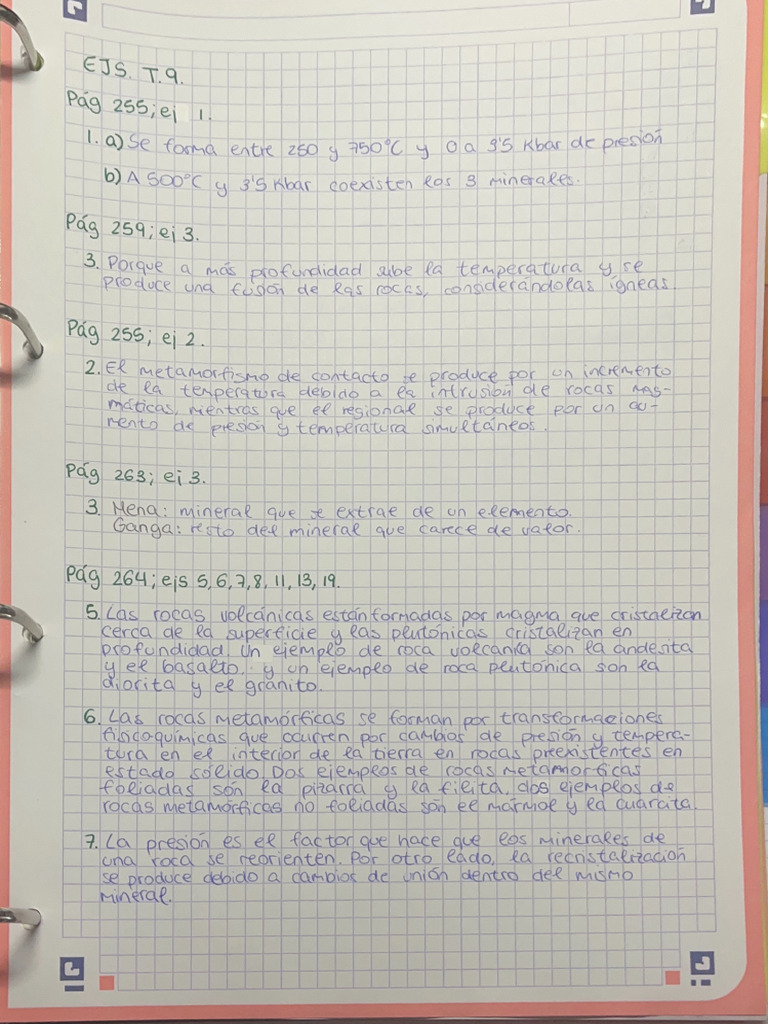 EJS. T.9.
Pág 255; ej 1.
1. a) Se forma entre 250 y 750°C y 0 a 3'5 Kbar de presión
b) A 500°C y 3'5 Kbar coexisten los 3 minerales.
Pág 259; ej 3.
3. Porque a más profundidad sube la temperatura y se
produce una fusión de las rocas, considerándolas ígneas.
Pág 255; ej 2.
2. El metamorfismo de contacto se produce por un incremento
de la temperatura debido a la intrusión de rocas mag-
máticas, mientras que el regional se produce por un au-
mento de presión y temperatura simultáneos.
Pág 263; ej 3.
3. Mena: mineral que se extrae de un elemento.
Ganga: resto del mineral que carece de valor.
Pág 264; ejs 5, 6, 7, 8, 11, 13, 19.
5. Las rocas volcánicas están formadas por magma que cristalizan
cerca de la superficie y las plutónicas cristalizan en
profundidad. Un ejemplo de roca volcanica son la andesita
y el basalto, y un ejemplo de roca plutónica son la
diorita y el granito.
6. Las rocas metamórficas se forman por transformaciones
fisicoquímicas que ocurren por cambios de presión y tempera-
tura en el interior de la tierra en rocas preexistentes en
estado sólido. Dos ejemplos de rocas metamorficas
foliadas son la pizarra y la filita, dos ejemplos de
rocas metamórficas no foliadas son el mármol y la cuarcita.
7. La presión es el factor que hace que los minerales de
una roca se reorienten. Por otro lado, la recristalización
se produce debido a cambios de unión dentro del mismo
mineral.